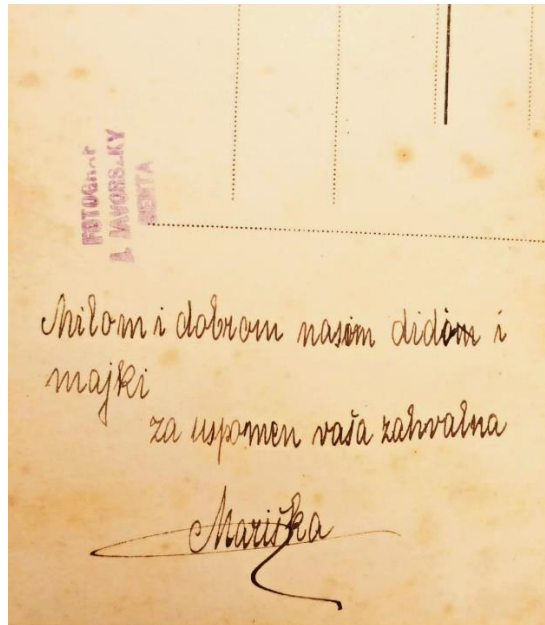 FOTOGRAF
SENTA
Milom i dobrom nasim didom i
majki
za uspomen vaša zahvalna
Mariška